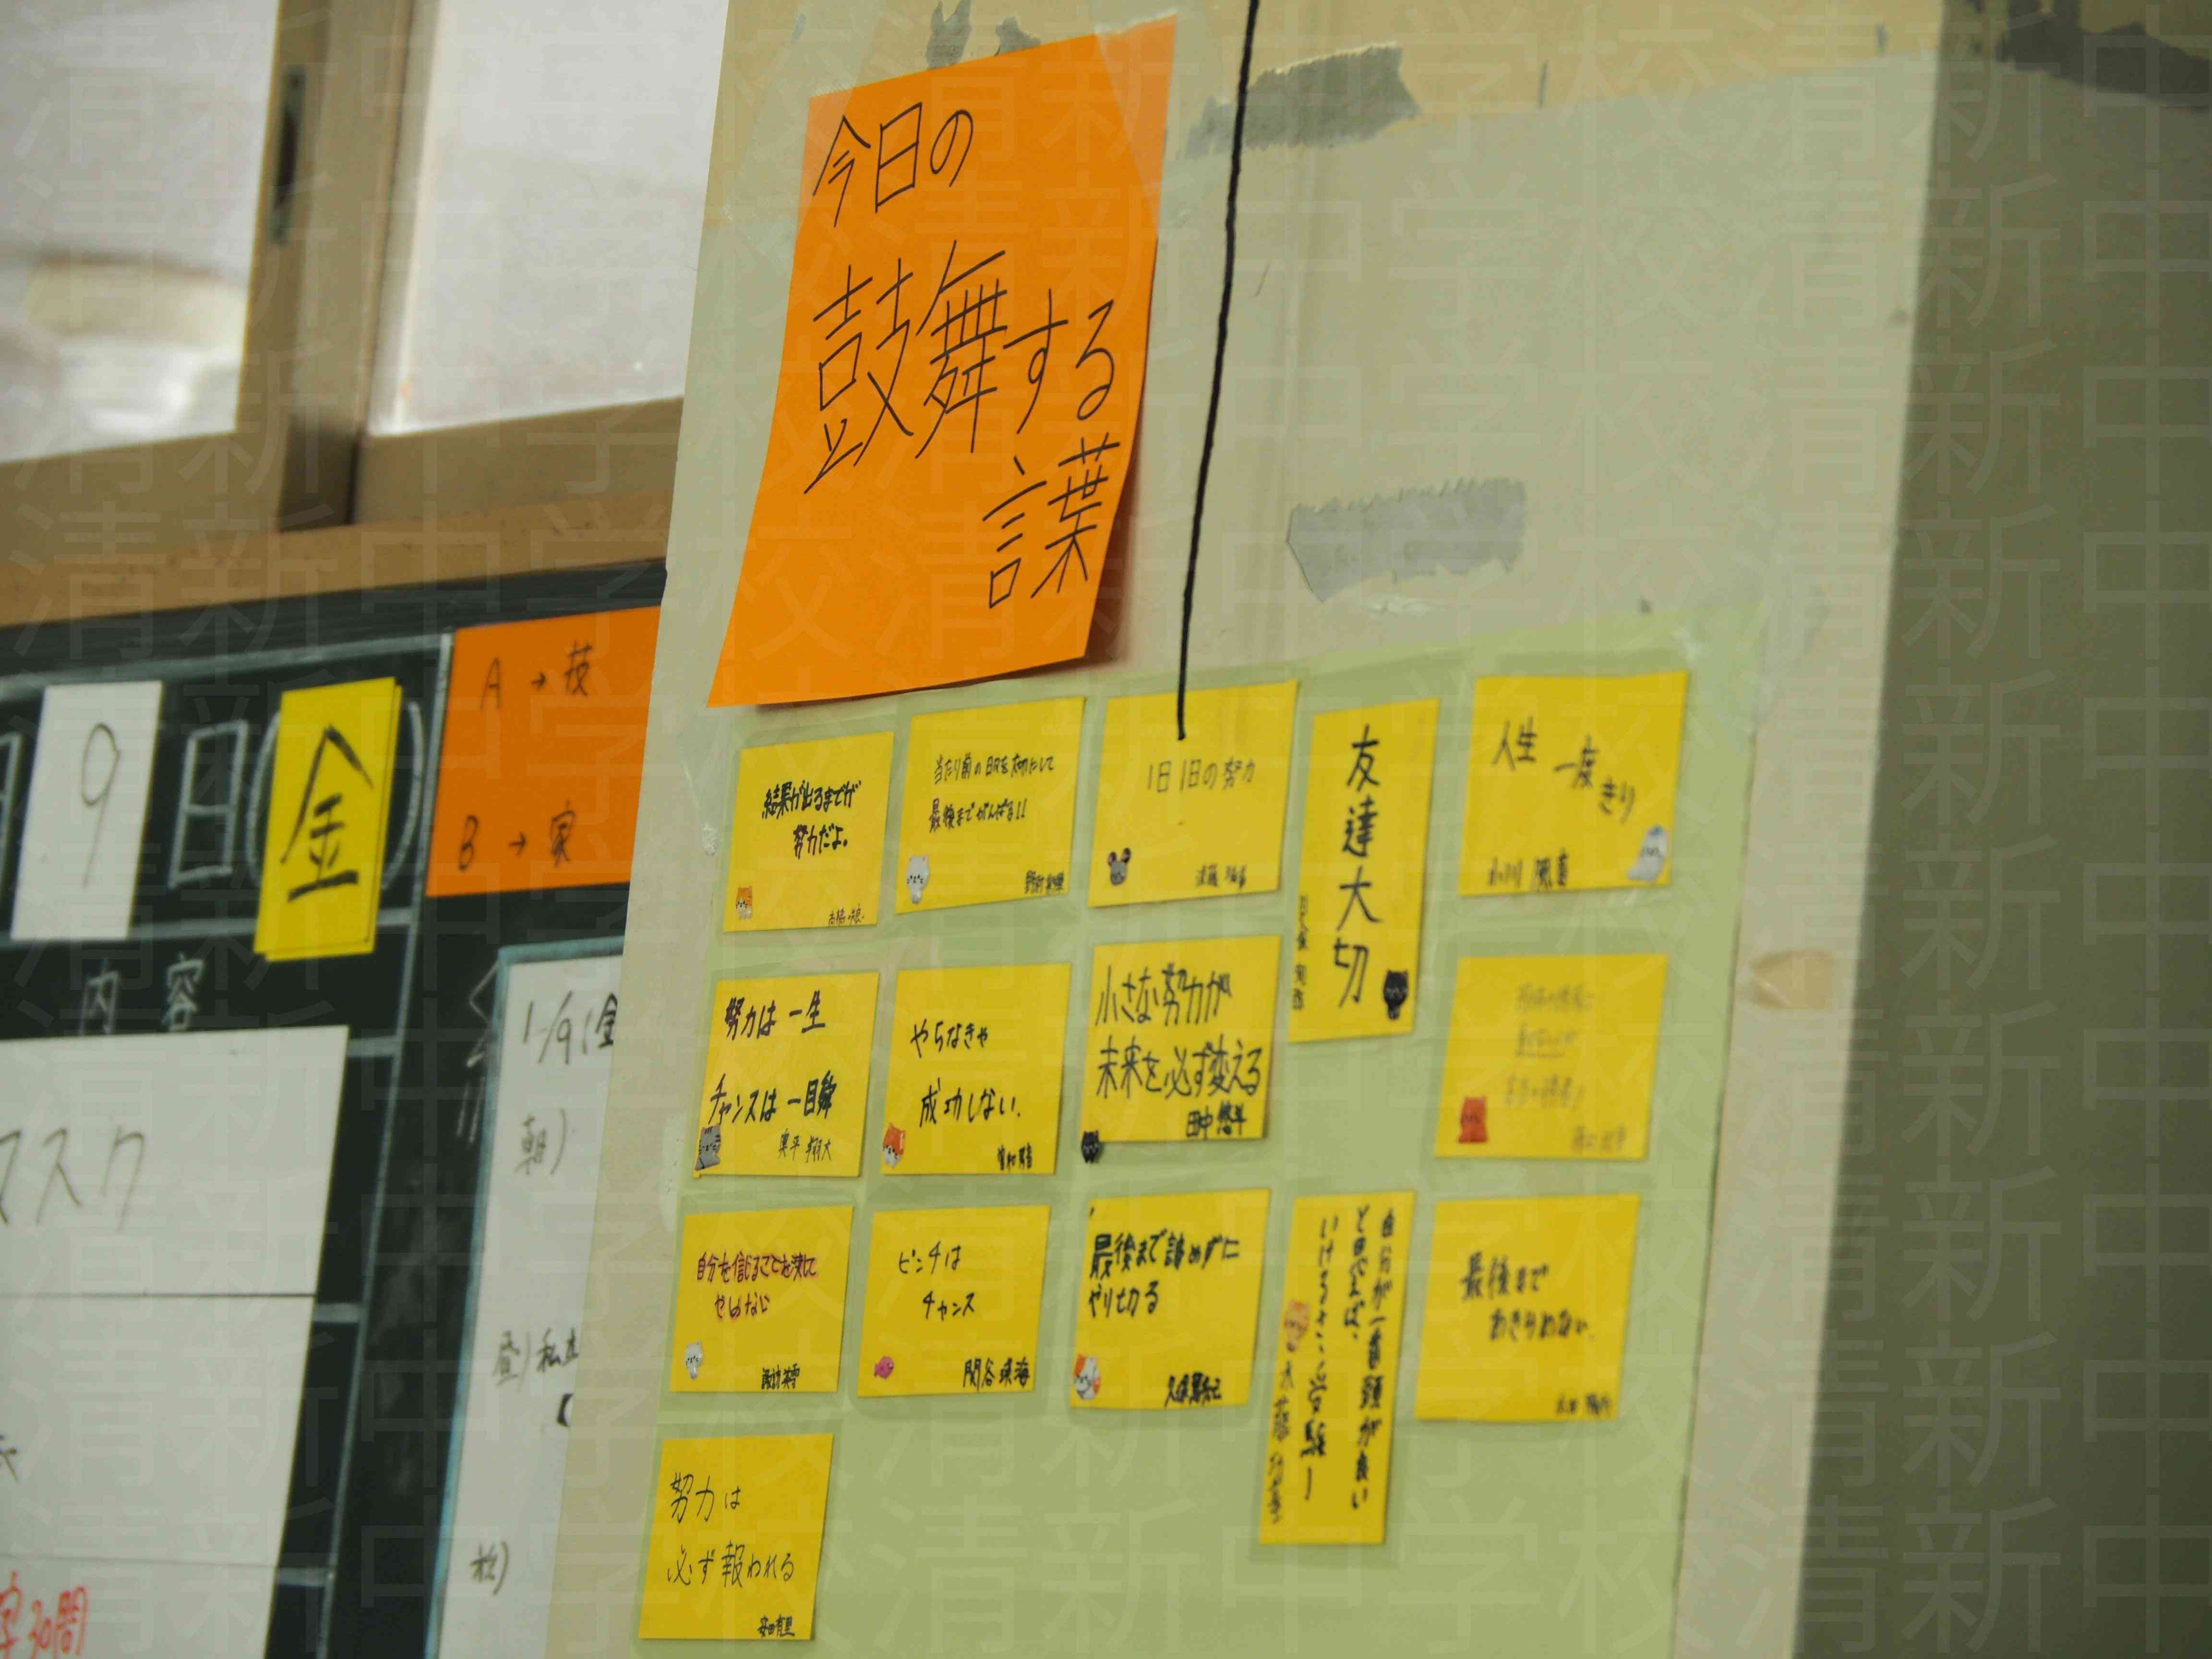 今日の
鼓舞する
言葉
9
日(金)
A→技
B→家
内容
マスク
1/9(金
朝)
昼)私立
30問
結果が出るまでが
努力だよ。
当たり前の日々を大切にして
最後までがんばる!!
1日1日の努力
友達大切
人生
一度
きり
小川
努力は一生
チャンスは一瞬
奥平 翔大
やらなきゃ
成功しない.
小さな努力が
未来を必ず変える
田中悠斗
自分を信じることを決して
やめない
ピンチは
チャンス
関谷 瑛海
最後まで諦めずに
やり切る
自分が一番頭が良い
と思えば、
いけるさ
最後まで
あきらめない.
努力は
必ず報われる
安田有里
清新中学校